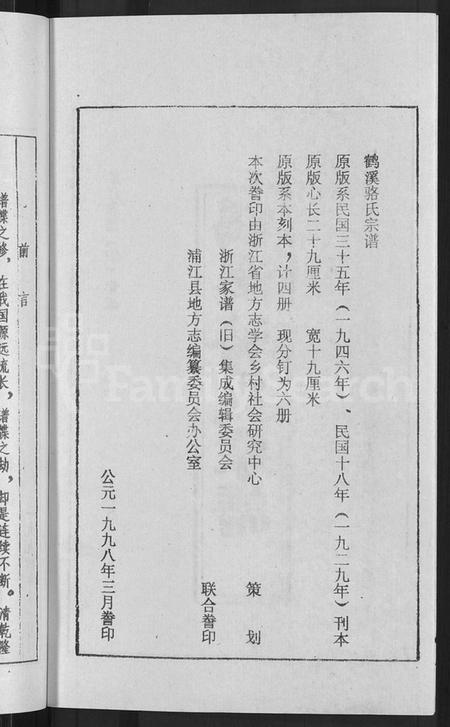 鹤溪骆氏宗谱
原版系民国三十五年（一九四六年）、民国十八年（一九二九年）刊本
原版心长二十九厘米 宽十九厘米
原版系本刻本，计四册 现分钉为六册
本次誊印由浙江省地方志学会乡村社会研究中心 策划
浙江家谱（旧）集成编辑委员会
浦江县地方志编纂委员会办公室 联合誊印
公元一九九八年三月誊印
前言
谱牒之修，在我国源远流长，谱牒之劫，却是连续不断。清乾隆
FamilySearch